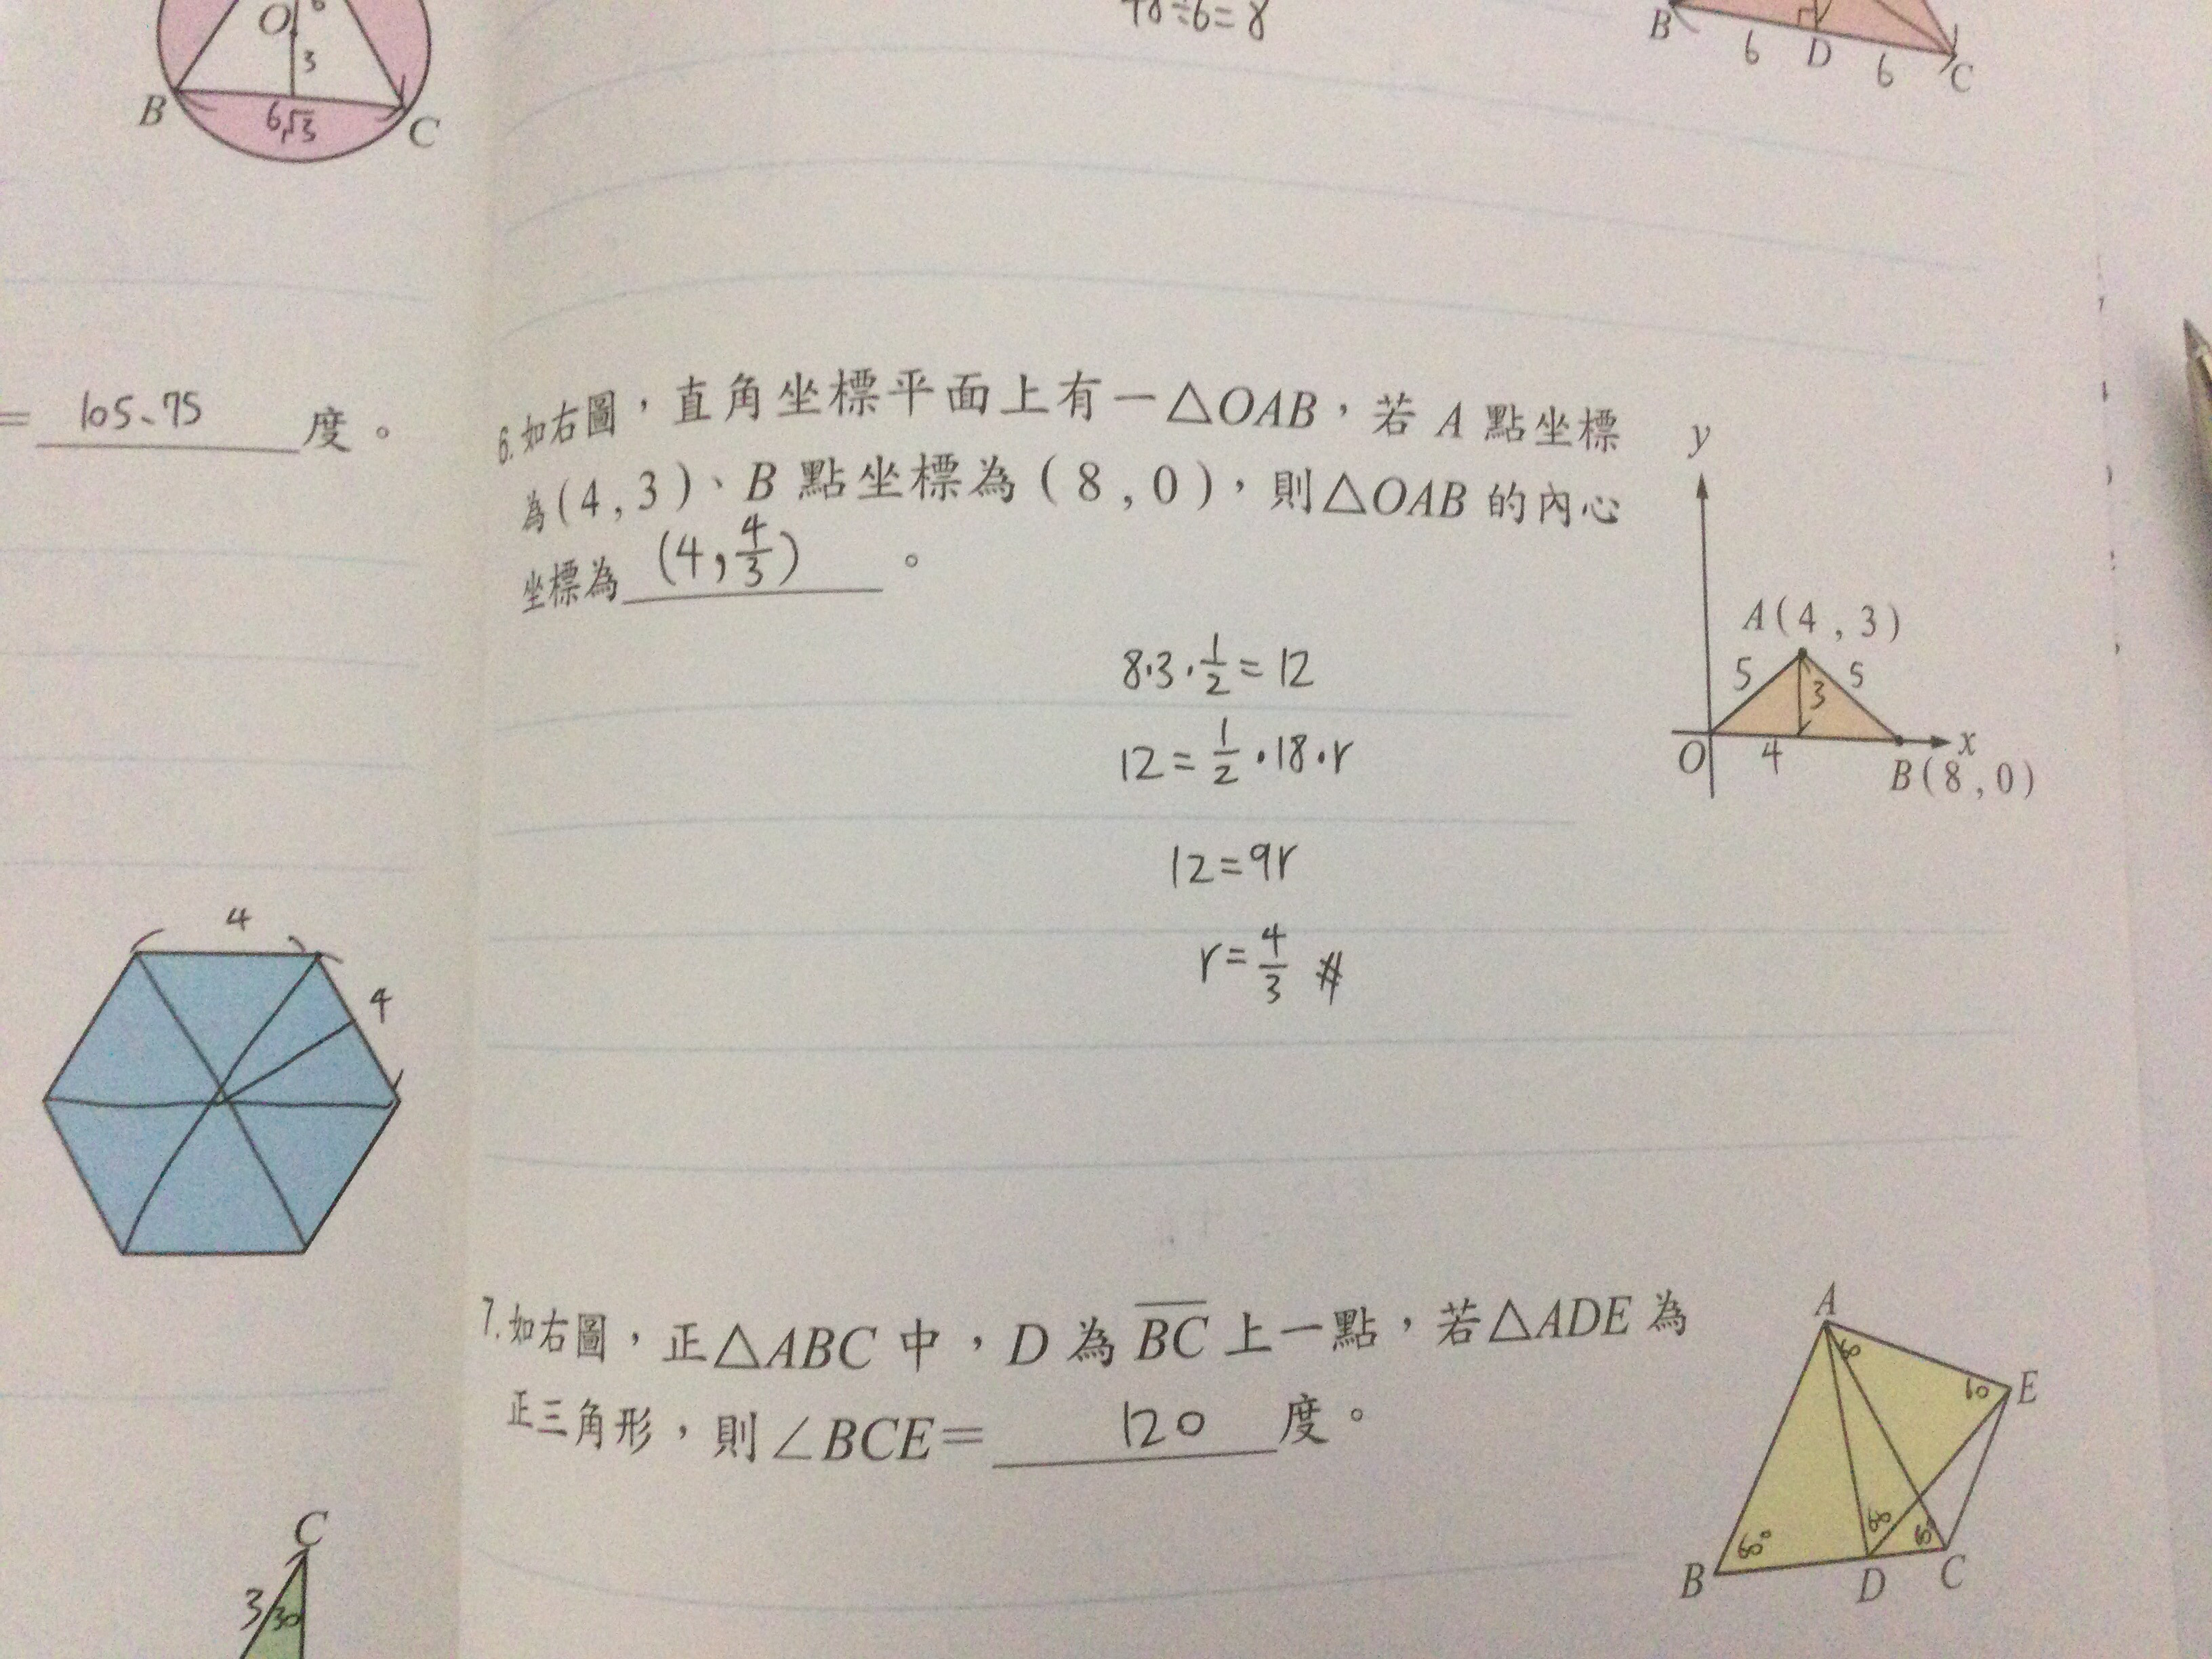 O 6
3
B
6√3
C
48÷6=8
B
6
D
6
C
= 105、75 度。
4
4
C
3
30
6.如右圖，直角坐標平面上有一△OAB，若 A 點坐標
為(4,3)、B 點坐標為(8,0)，則△OAB 的內心
坐標為 (4,4/3) 。
8·3·1/2=12
12=1/2·18·r
12=9r
r=4/3 #
y
A(4,3)
5 3 5
O 4 x
B(8,0)
7.如右圖，正△ABC 中，D 為 BC 上一點，若△ADE 為
正三角形，則∠BCE= 120 度。
A
60
60 E
60° 60 60
B D C